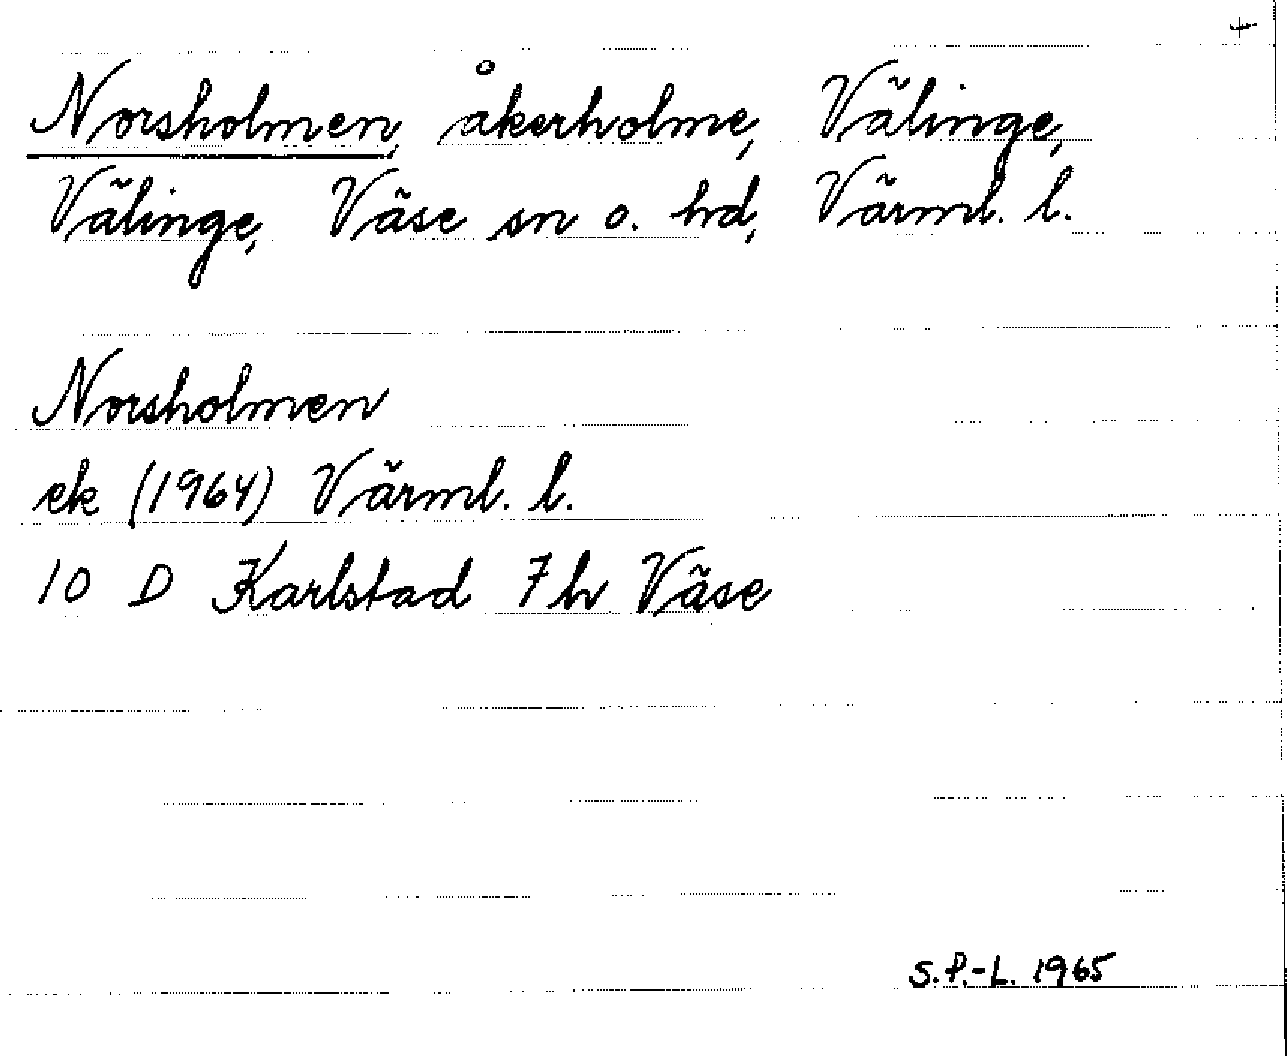 +
Norsholmen, åkerholme, Välinge,
Välinge, Väse sn o. hd, Värml. l.
Norsholmen
ek (1964) Värml. l.
10 D Karlstad 7h Väse
S.P.-L. 1965